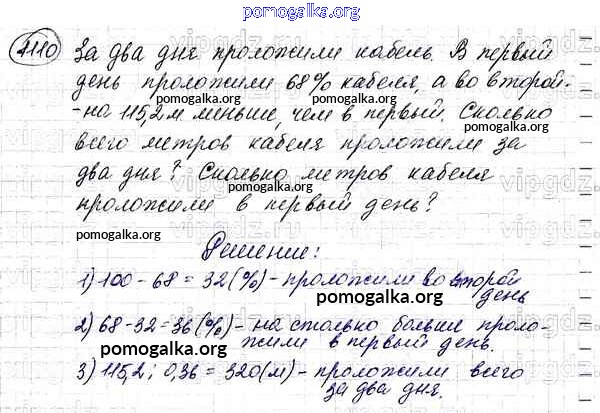 pomogalka.org
1110 За два дня проложили кабель. В первый
день проложили 68% кабеля, а во второй-
pomogalka.org
-на 115,2м меньше, чем в первый. Сколько
всего метров кабеля проложили за
pomogalka.org
два дня? Сколько метров кабеля
pomogalka.org
проложили в первый день?
pomogalka.org
Решение:
1) 100-68=32(%)-проложили во второй
день
pomogalka.org
2) 68-32=36(%)-на столько больше проло-
жили в первый день.
pomogalka.org
3) 115,2:0,36=320(м)-проложили всего
за два дня.
pomogalka.org